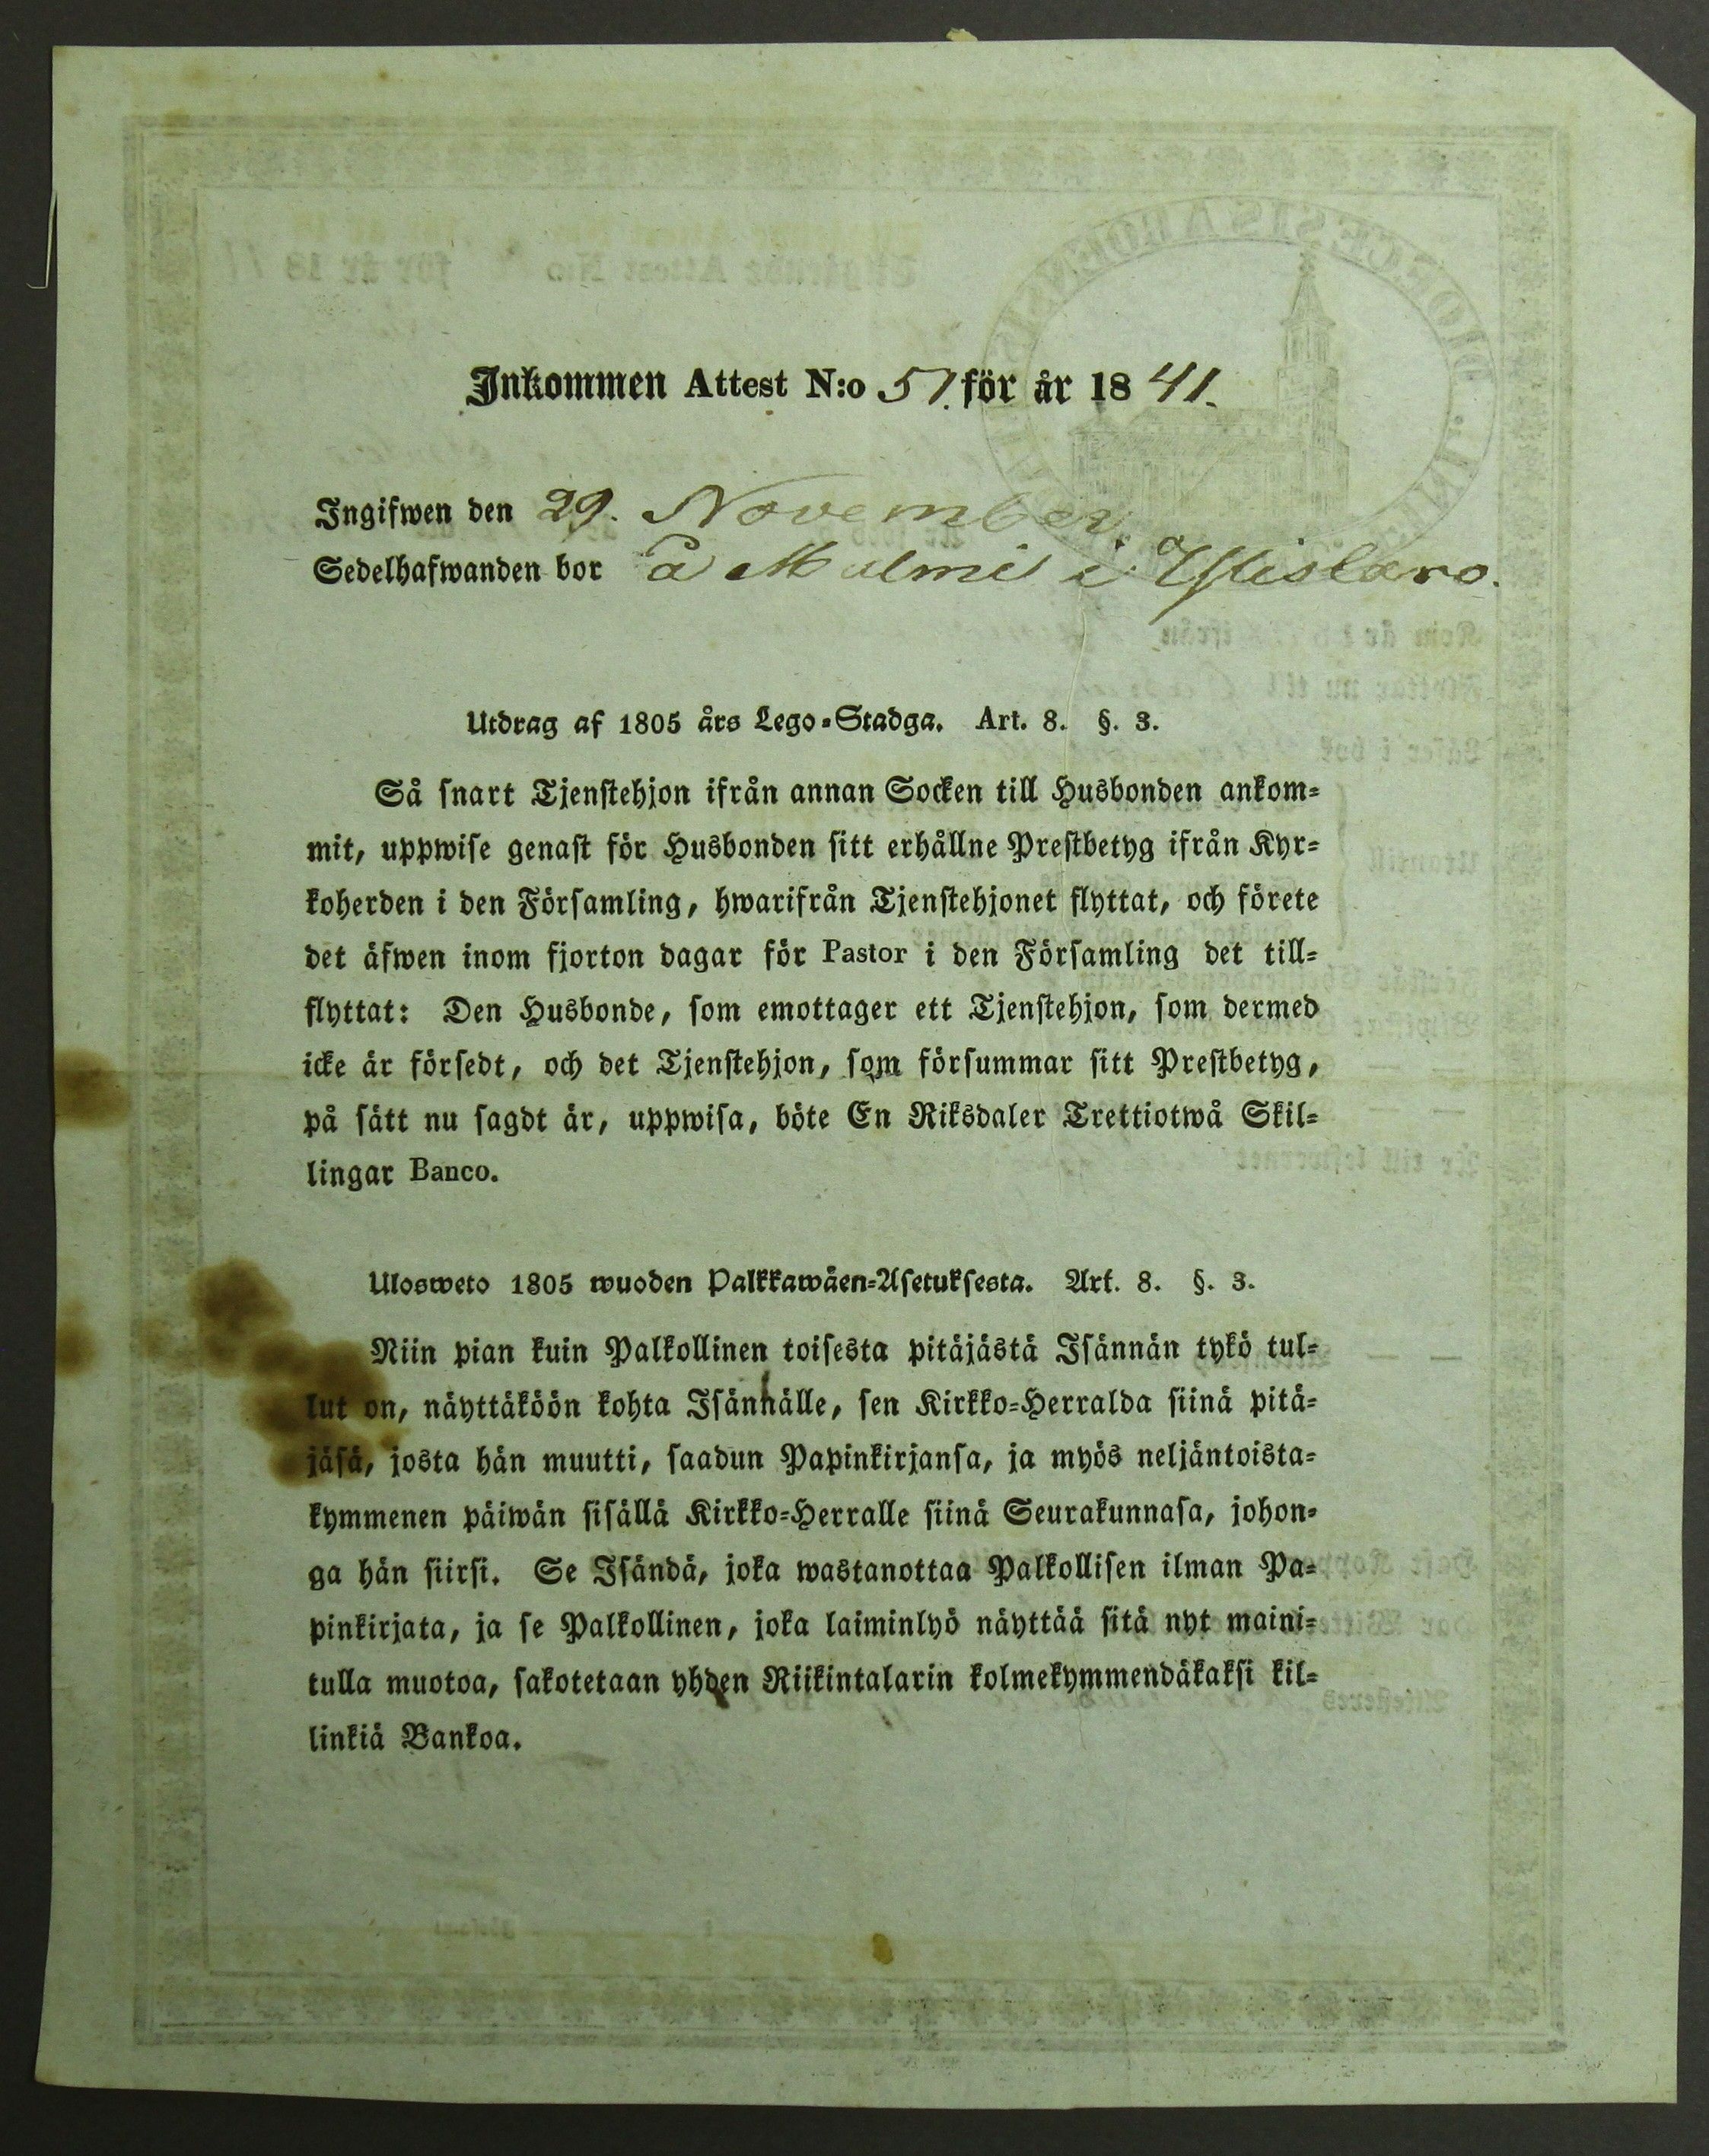 Inkommen Attest N:o 51. för år 1841.
Ingifwen den 29. November.
Sedelhafwanden bor å Malmi i Yliskaro.
Utdrag af 1805 års Lego-Stadga. Art. 8. §. 3.
Så snart Tjenstehjon ifrån annan Socken till Husbonden ankom-
mit, uppwise genast för Husbonden sitt erhållne Prestbetyg ifrån Kyr-
koherden i den Församling, hwarifrån Tjenstehjonet flyttat, och förete
det äfwen inom fjorton dagar för Pastor i den Församling det till-
flyttat: Den Husbonde, som emottager ett Tjenstehjon, som dermed
icke är försedt, och det Tjenstehjon, som försummar sitt Prestbetyg,
på sätt nu sagdt är, uppwisa, böte En Riksdaler Trettiotwå Skil-
lingar Banco.
Ulosweto 1805 wuoden Palkkawäen-Asetuksesta. Art. 8. §. 3.
Niin pian kuin Palkollinen toisesta pitäjästä Isännän tykö tul-
lut on, näyttäköön kohta Isännälle, sen Kirkko-Herralda siinä pitä-
jäsä, josta hän muutti, saadun Papinkirjansa, ja myös neljäntoista-
kymmenen päiwän sisällä Kirkko-Herralle siinä Seurakunnasa, johon-
ga hän siirsi. Se Isändä, joka wastanottaa Palkollisen ilman Pa-
pinkirjata, ja se Palkollinen, joka laiminlyö näyttää sitä nyt maini-
tulla muotoa, sakotetaan yhden Riikintalarin kolmekymmendäkaksi kil-
linkiä Bankoa.